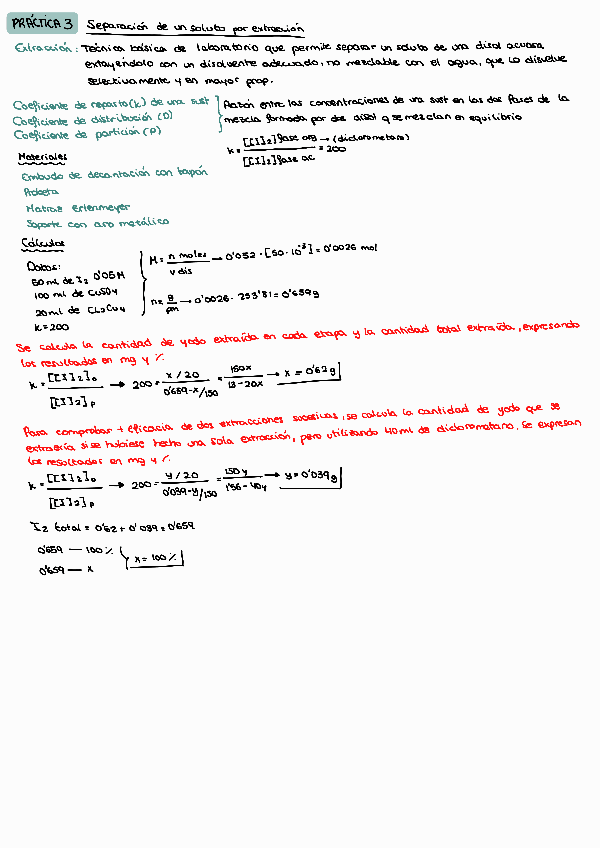 PRÁCTICA 3 Separación de un soluto por extracción
Extracción: Técnica básica de laboratorio que permite separar un soluto de una disol acuosa,
extayéndolo con un disolvente adecuado, no mezclable con el agua, que lo disuelve
selectivamente y en mayor prop.
Coeficiente de reparto (k) de una sust
Coeficiente de distribución (D)
Coeficiente de partición (P)
Razón entre las concentraciones de una sust en las dos fases de la
mezcla formada por dos disol q se mezclan en equilibrio
k = [[I]2] fase org → (diclorometano) / [[I]2] fase ac = 200
Materiales
Embudo de decantación con tapón
Probeta
Matraz Erlenmeyer
Soporte con aro metálico
Cálculos
Datos:
50 ml de I2 0'05M
100 ml de CuSO4
20 ml de CL2CH4
k = 200
M = n moles / v dis → 0'052 · [50 · 10⁻³] = 0'0026 mol
n = g / pm → 0'0026 · 253'81 = 0'659 g
Se calcula la cantidad de yodo extraída en cada etapa y la cantidad total extraída, expresando
los resultados en mg y %.
k = [[I]2]o / [[I]2]p → 200 = x/20 / 0'659-x/150 = 150x / 13-20x → x = 0'62g
Para comprobar + eficacia de dos extracciones sucesivas, se calcula la cantidad de yodo que se
extraería si se hubiese hecho una sola extracción, pero utilizando 40 ml de diclorometano. Se expresan
los resultados en mg y %
k = [[I]2]o / [[I]2]p → 200 = y/20 / 0'039-y/150 = 150y / 1'56-40y → y = 0'039g
I2 total = 0'62 + 0'039 = 0'659
0'659 — 100%
0'659 — x
x = 100%